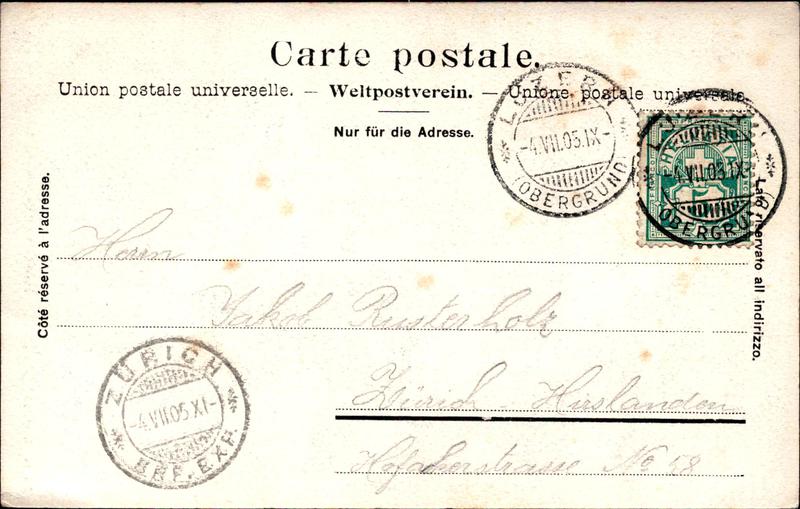 Carte postale.
Union postale universelle. — Weltpostverein. — Unione postale universale
Nur für die Adresse.
Côté réservé à l'adresse.
Lato riservato all indirizzo.
LUZERN
-4.VII.05.IX-
(OBERGRUND)
LUZERN
-4.VII.05.IX-
(OBERGRUND)
HELVETIA
5
Herrn
Jakob Rusterholz
Zürich Hirslanden
Hofackerstrasse No 58
ZÜRICH
-4.VII.05.XI-
BRF. EXP.